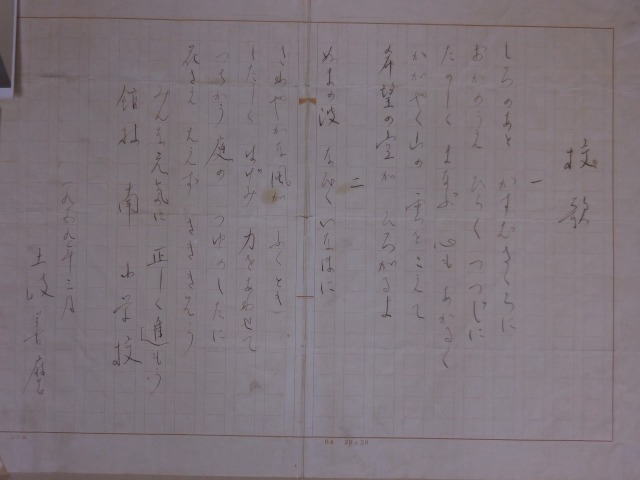 校歌
一
しろのあと かすむさくらに
おかのうえ ひらく つつじに
たのしく まなぶ 心も あかるく
かがやく山の 雲をこえて
希望の空が ひろがるよ
二
ぬまの波 なびく いなほに
さわやかな 風が ふくとき
したしく はげみ 力をあわせて
庭の つゆのしたに
花さえ たえず さききそう
みんな元気に 正しく 進もう
館林 南小学校
一九六九年三月
土岐善麿